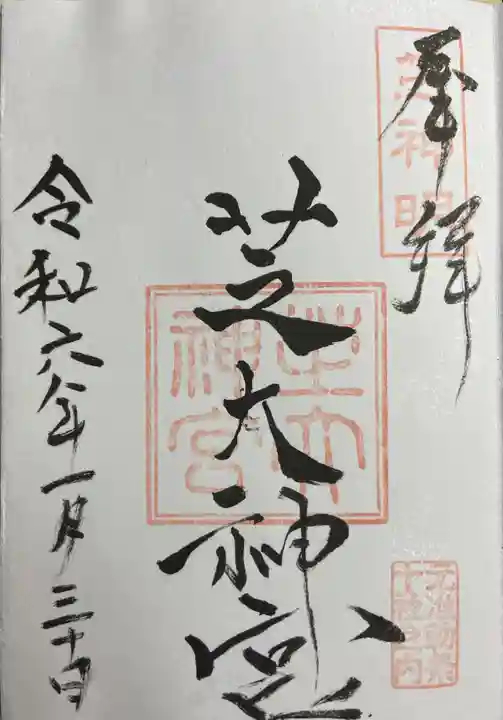 奉拝
芝神明
芝大神宮
芝大神宮
令和六年一月三十日